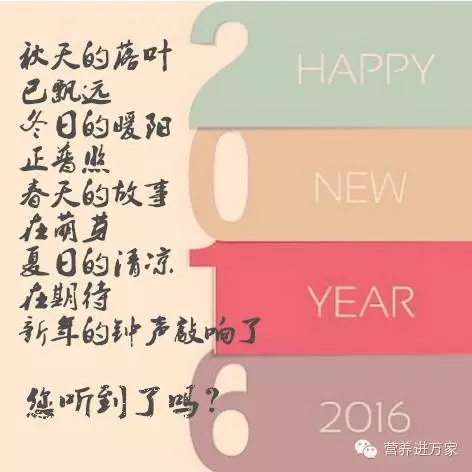 秋天的落叶
已飘远
冬日的暖阳
正普照
春天的故事
在萌芽
夏日的清凉
在期待
新年的钟声敲响了
您听到了吗？
2 HAPPY
0 NEW
1 YEAR
6 2016
营养进万家